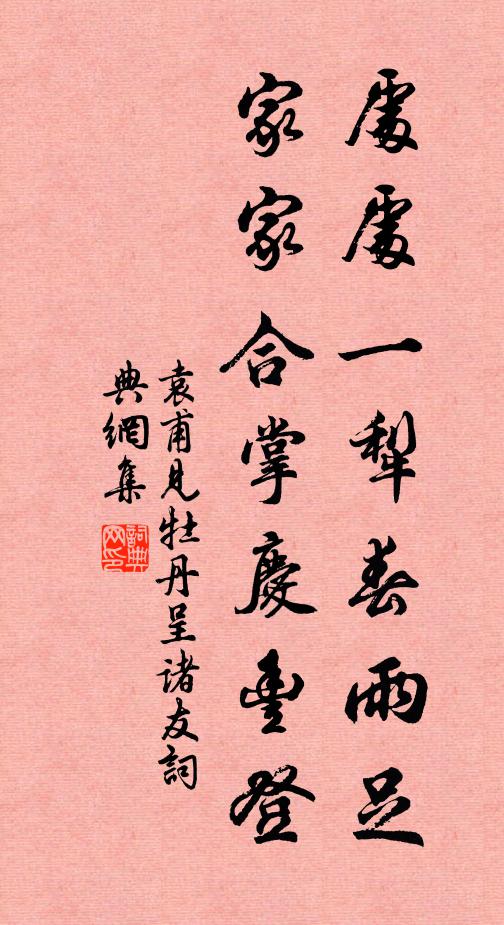 處處一犁春雨足
家家合掌慶豐登
袁甫見牡丹呈諸友詞
典網集
詞典網印